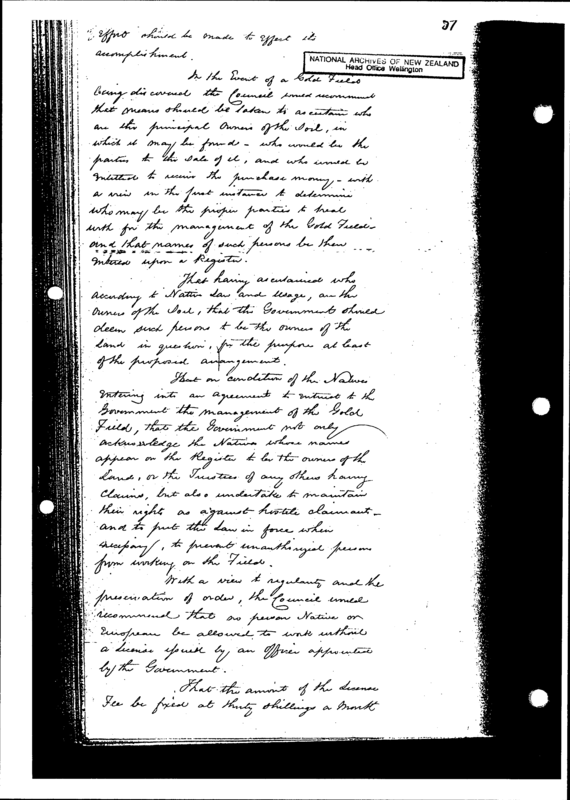 97
Effort should be made to effect its
accomplishment.
NATIONAL ARCHIVES OF NEW ZEALAND
Head Office Wellington
In the Event of a Gold Field
being discovered the Council would recommend
that means should be taken to ascertain who
are the principal Owners of the Soil, in
which it may be found - who would be the
parties to the sale of it, and who would be
entitled to receive the purchase money, - with
a view in the first instance to determine
who may be the proper parties to treat
with for the management of the Gold Field -
and that names of such persons be then
entered upon a Register.
That having ascertained who
according to Native Law and Usage, are the
owners of the Soil, that the Government should
deem such persons to be the owners of the
land in question, for the purpose at least
of the proposed arrangement.
That on condition of the Natives
entering into an agreement to entrust to the
Government the management of the Gold
Field, that the Government not only
acknowledge the Natives whose names
appear on the Register to be the owners of the
Land, or the Trustees of any others having
Claims, but also undertake to maintain
their rights as against hostile claimants -
and to put the Law in force when
necessary, to prevent unauthorized persons
from working on the Field.
With a view to regularity and the
preservation of order, the Council would
recommend that no person Native or
European be allowed to work without
a license issued by an Officer appointed
by the Government.
That the amount of the License
Fee be fixed at thirty shillings a Month